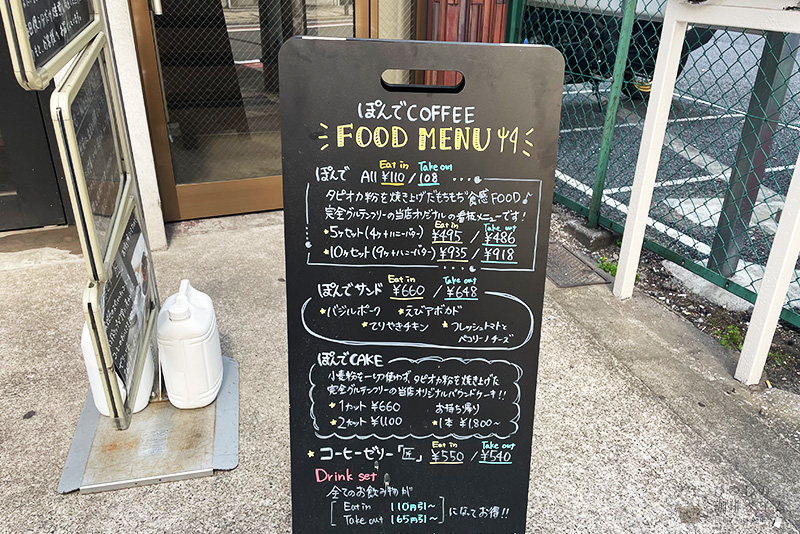 ぽんでCOFFEE
FOOD MENU
ぽんで All Eat in ¥110 / Take out 108
タピオカ粉を焼き上げたもちもち食感FOOD♪
完全グルテンフリーの当店オリジナルの看板メニューです!
★5ヶセット(4ヶ+ハニーバター) Eat in ¥495 / Take out ¥486
★10ヶセット(9ヶ+ハニーバター) ¥935 / ¥918
ぽんでサンド Eat in ¥660 / Take out ¥648
★バジルポーク ★えびアボカド
★てりやきチキン ★フレッシュトマトと
ペコリーノチーズ
ぽんでCAKE
小麦粉を一切使わず、タピオカ粉を焼き上げた
完全グルテンフリーの当店オリジナルパウンドケーキ!!
★1カット ¥660 お持ち帰り
★2カット ¥1100 ★1本 ¥1,800~
★コーヒーゼリー「匠」 Eat in ¥550 / Take out ¥540
Drink set
全てのお飲み物が
Eat in 110円引~
Take out 165円引~
になってお得!!